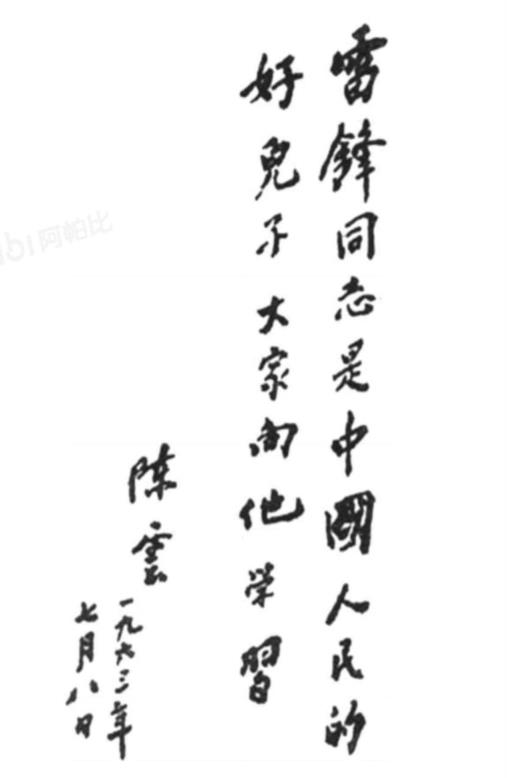 雷鋒同志是中國人民的
好兒子大家向他学習
陈雲
一九六三年
七月八日
阿帕比